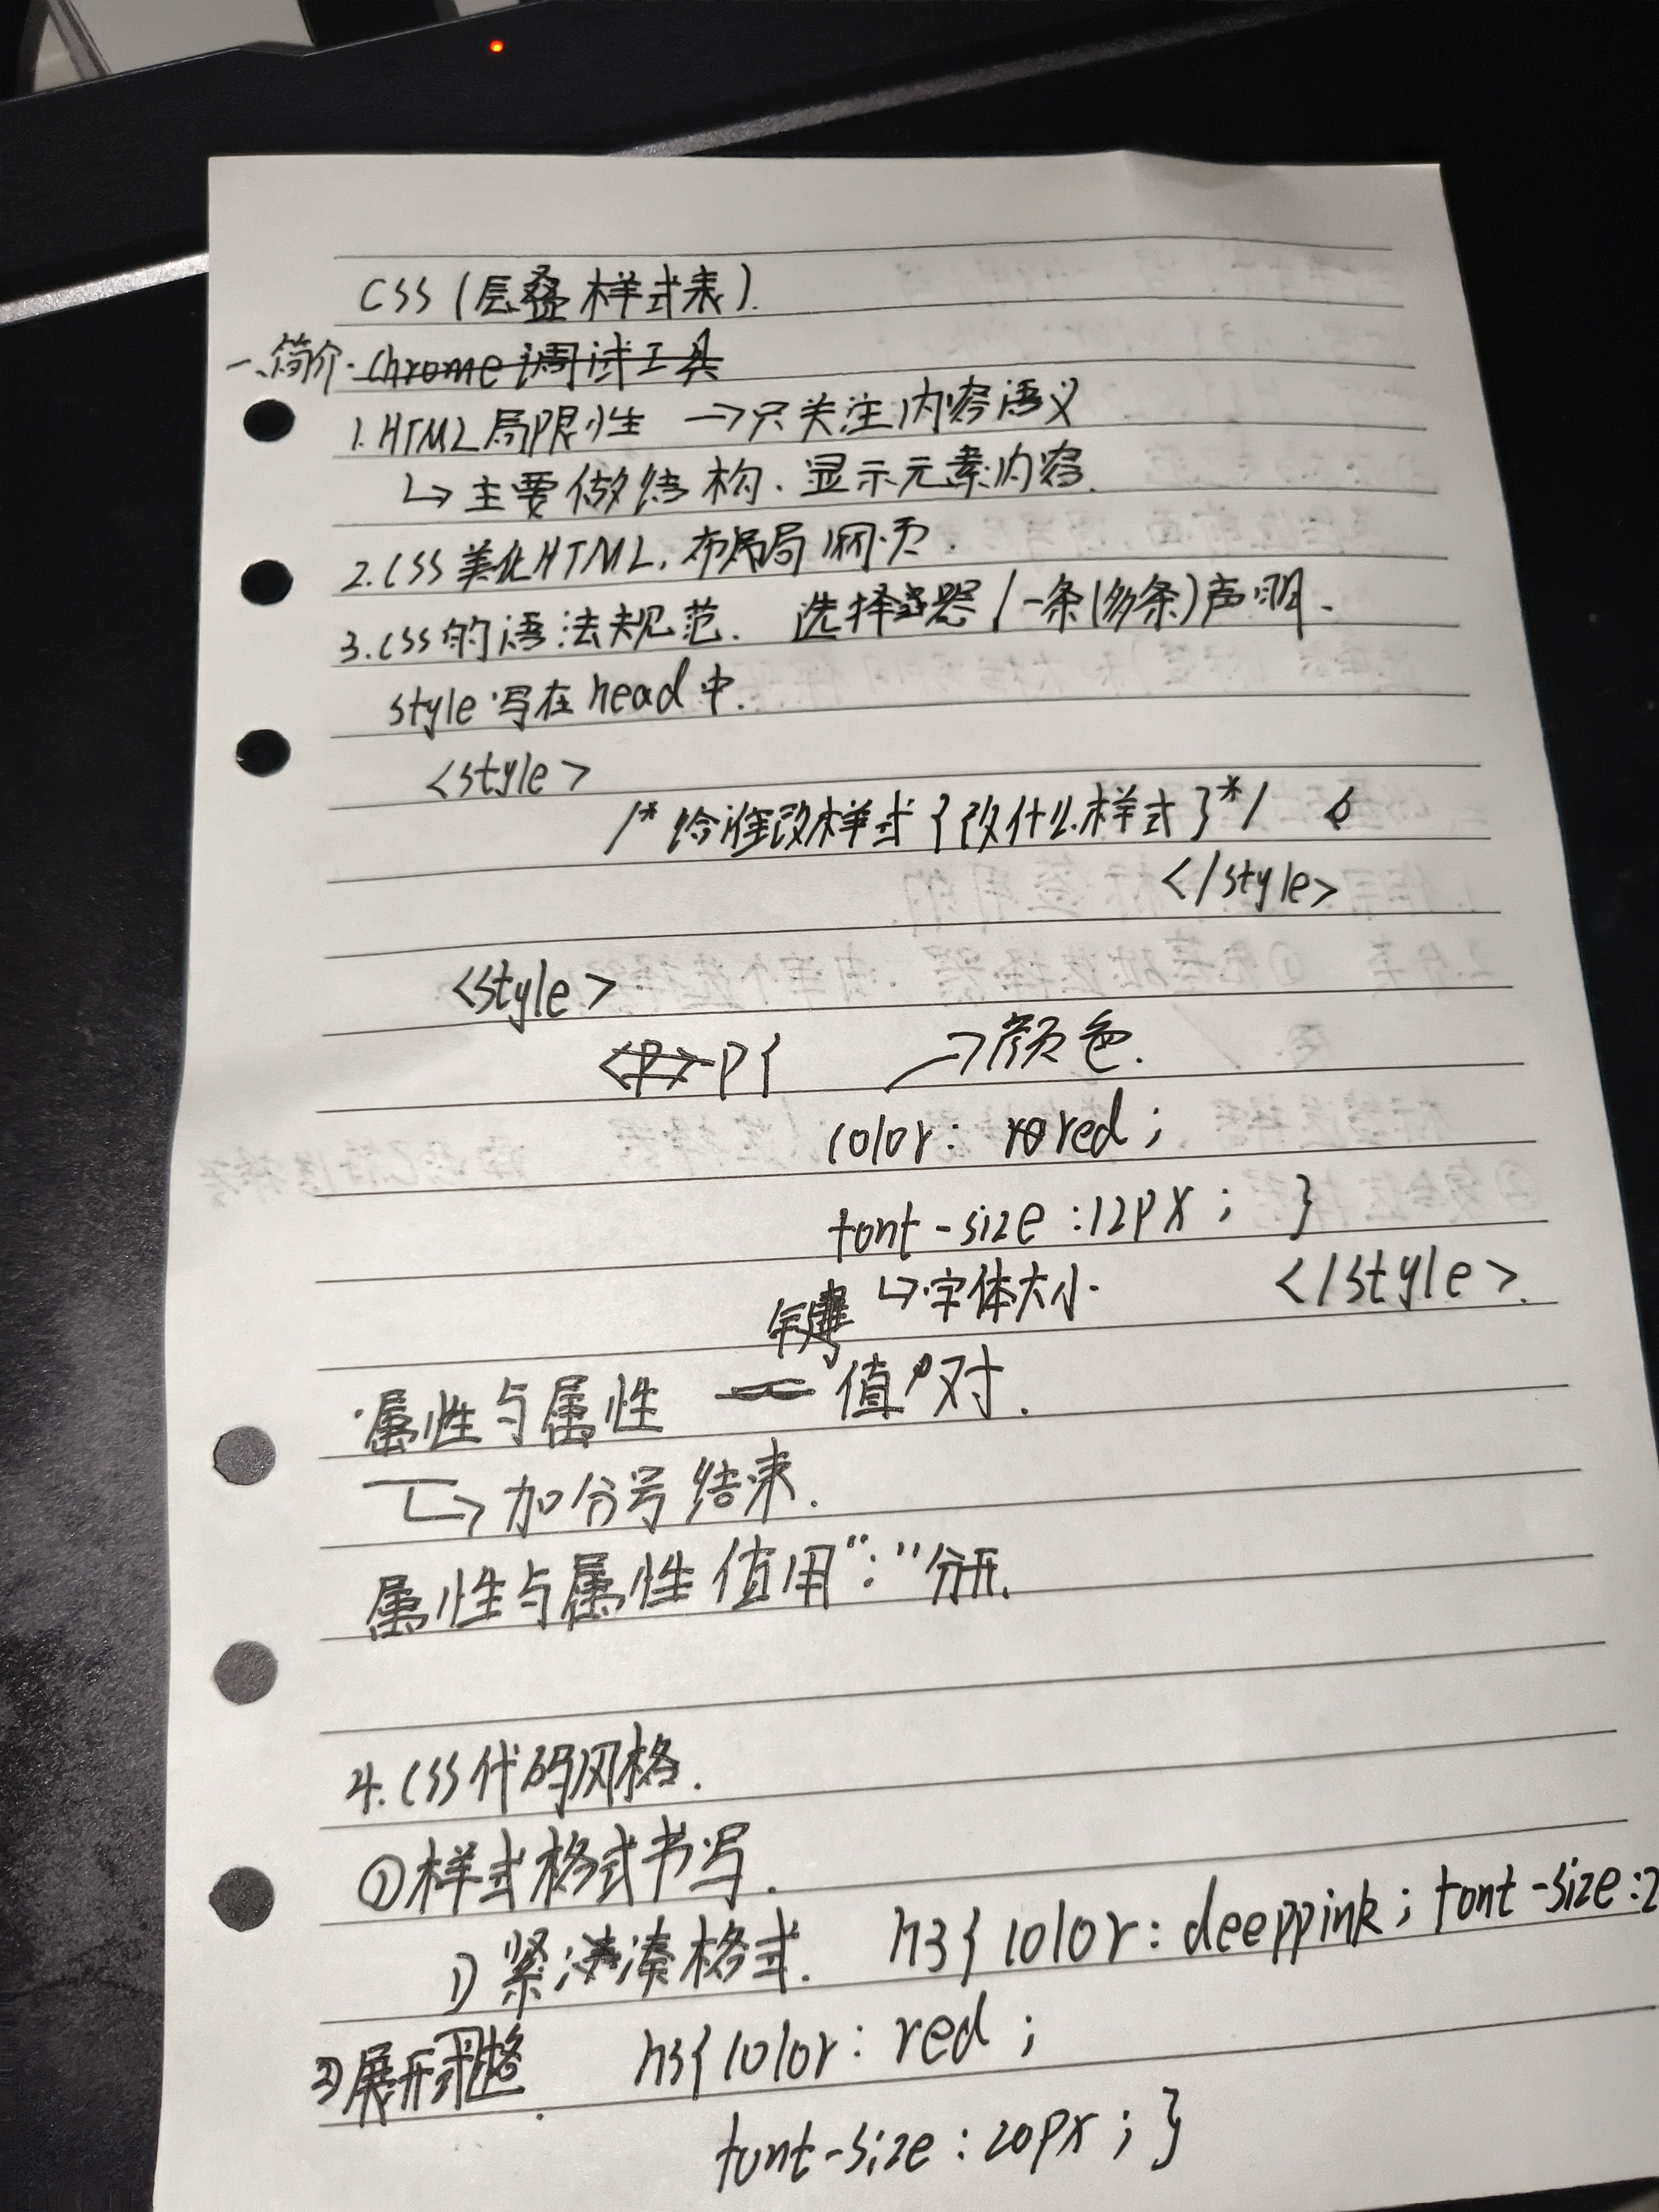 CSS(层叠样式表).
一、简介. Chrome调试工具
1. HTML局限性 →只关注内容语义
↳主要做结构、显示元素内容.
2. CSS美化HTML, 布局网页.
3. CSS的语法规范. 选择器/一条(多条)声明.
style写在head中.
<style>
/*给谁改样式{改什么样式}*/
</style>
<style>
<P> P{ →颜色.
color: red;
font-size:12px; }
↳字体大小. </style>.
键
属性与属性 值"对.
↳加分号结束.
属性与属性值用":"分开.
4. CSS代码风格.
①样式格式书写.
1) 紧凑格式. h3{color:deeppink;font-size:2
2)展开式格.
h3{color:red;
font-size:20px;}